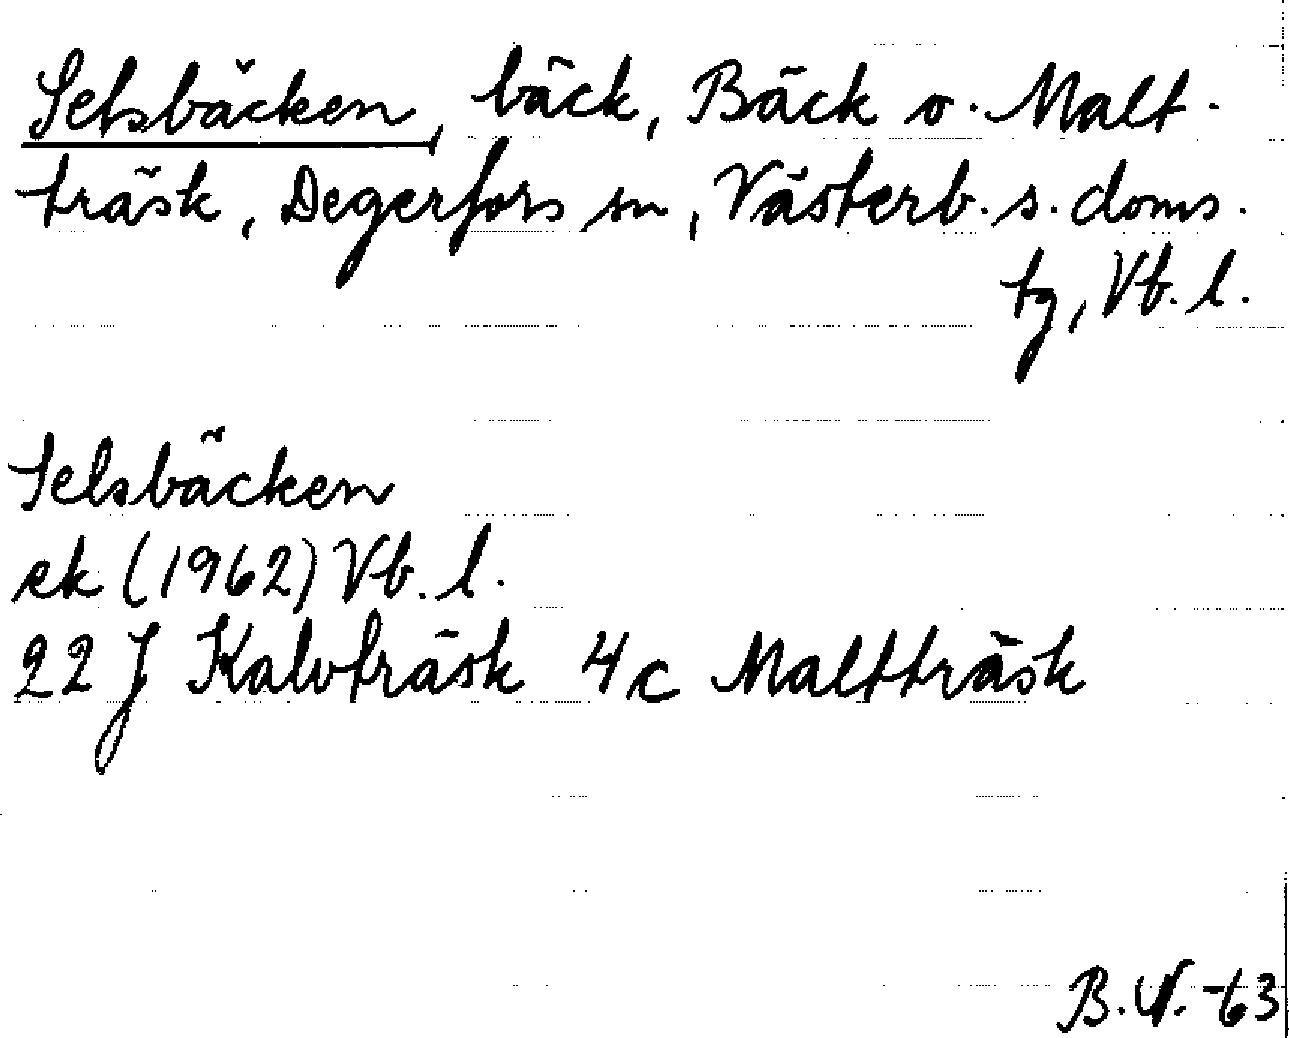 Selsbäcken, bäck, Bäck o. Malt-
träsk, Degerfors sn, Västerb. s. doms.
tg, Vb. l.
Selsbäcken
ek (1962) Vb. l.
22 J Kalvträsk 4c Maltträsk
B.N. -63